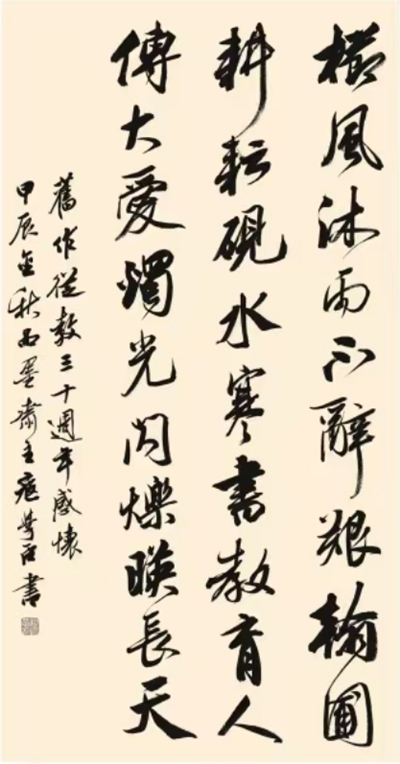 櫛風沐雨不辭艱翰圃
耕耘硯水寒書教育人
傳大愛燭光閃爍暎長天
舊作從教三十週年感懷
甲辰金秋墨齋主書